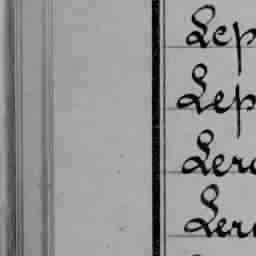 Lep
Lep
Lero
Lero